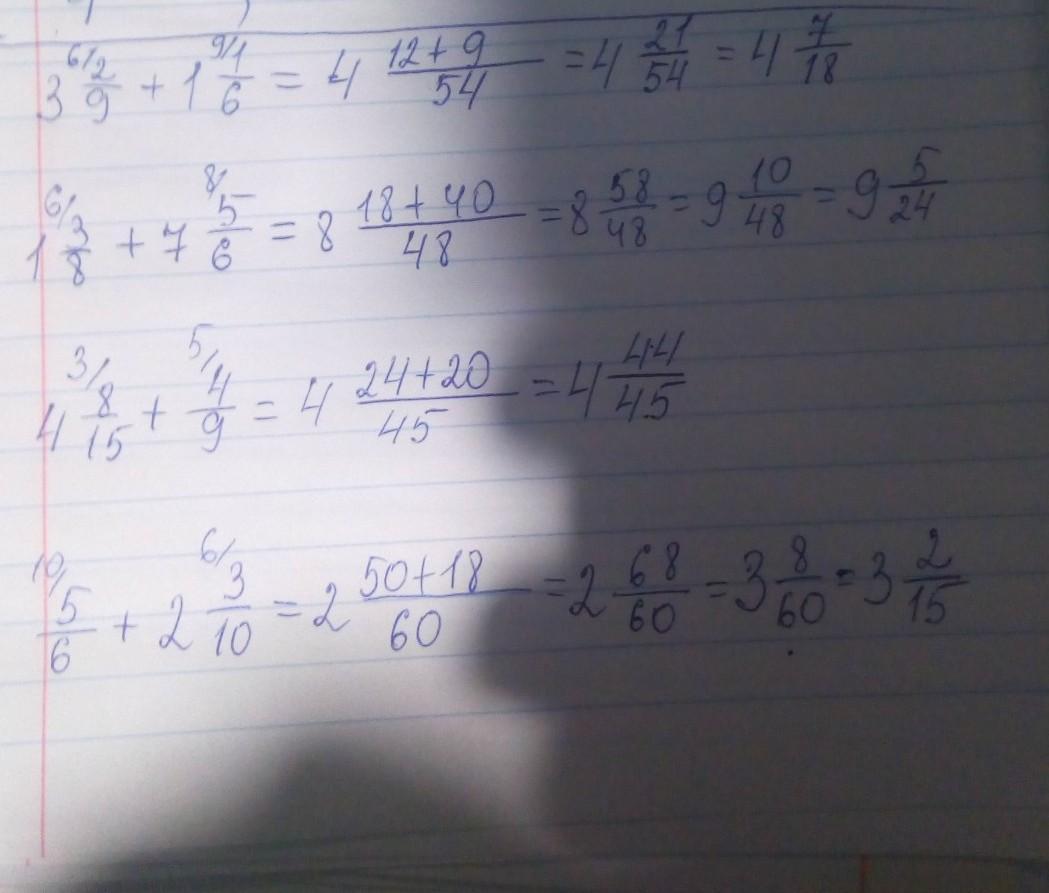 3 6/ 2/9 + 1 9/ 1/6 = 4 (12+9)/54 = 4 21/54 = 4 7/18
1 6/ 3/8 + 7 8/ 5/6 = 8 (18+40)/48 = 8 58/48 = 9 10/48 = 9 5/24
4 3/ 8/15 + 5/ 4/9 = 4 (24+20)/45 = 4 44/45
10/ 5/6 + 2 6/ 3/10 = 2 (50+18)/60 = 2 68/60 = 3 8/60 = 3 2/15